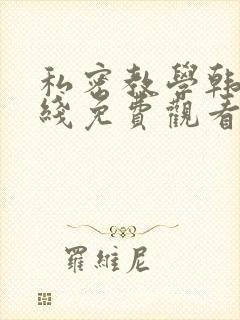 私密教學韩
綫免費觀看
羅維尼